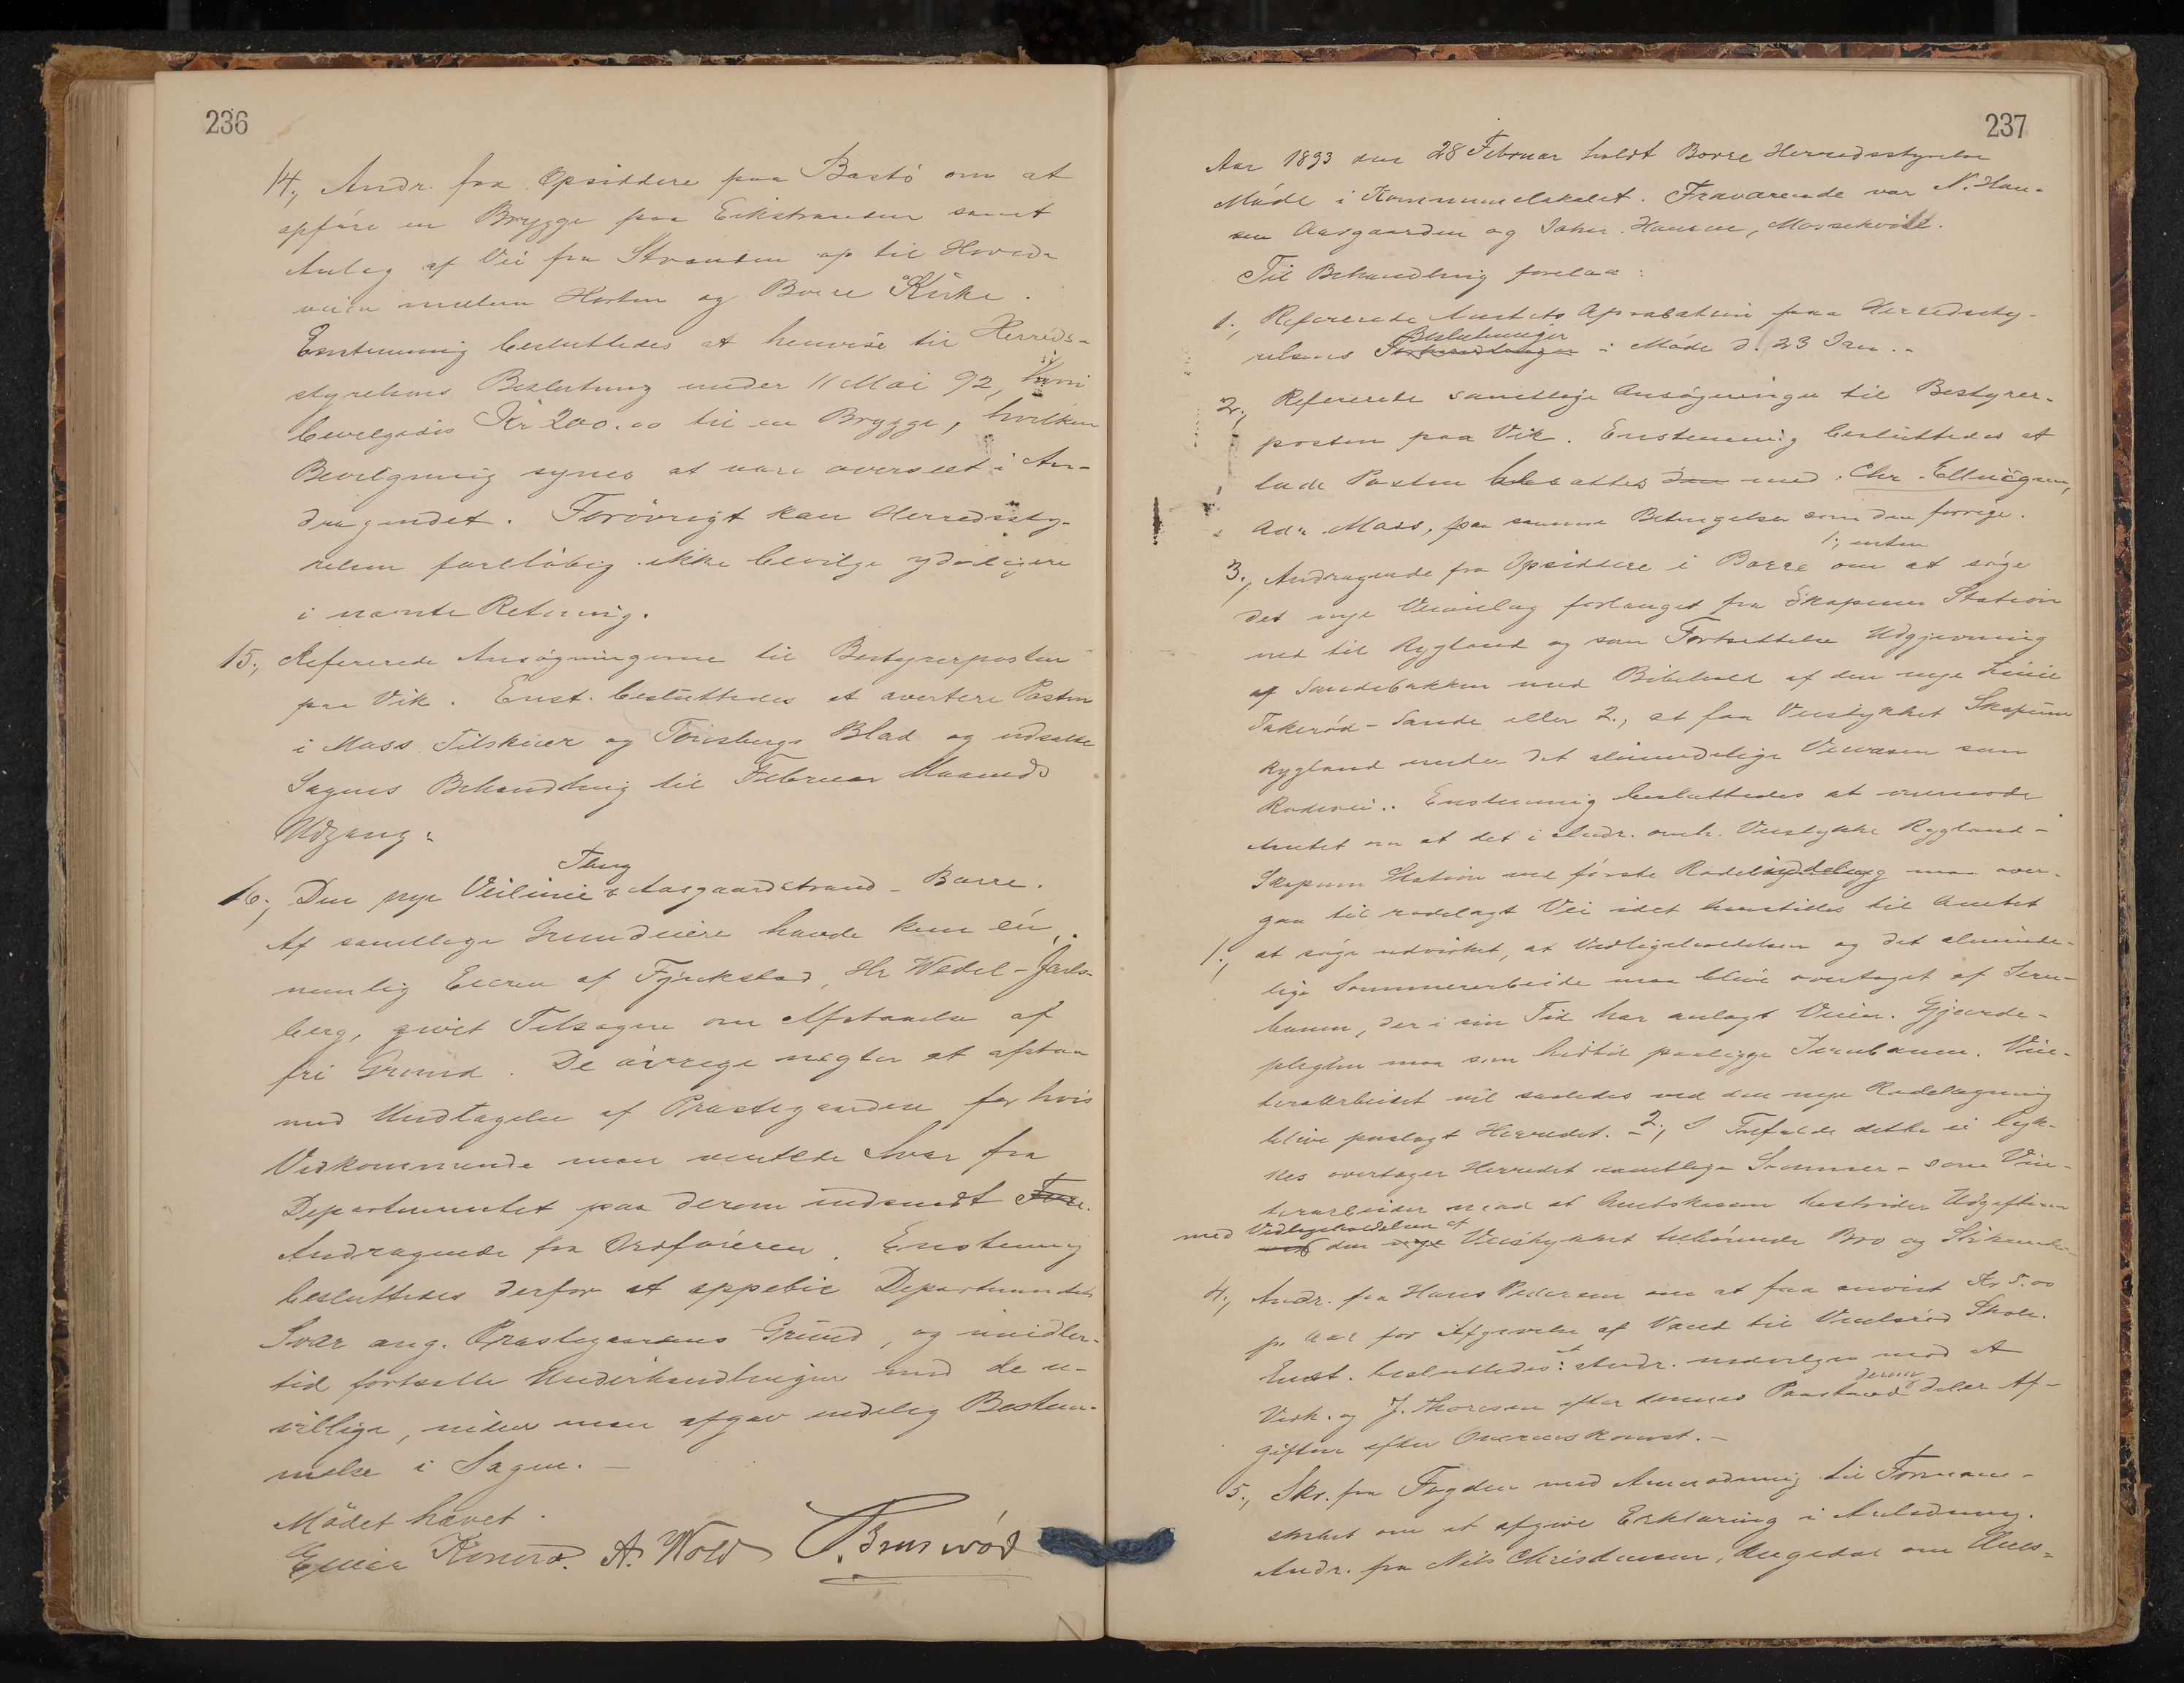 236
14., Andr. fra Opsiddere paa Bastö om at
opföre en Brygge paa Eikstranden samt
Anlæg af Vei fra Stranden op til Hoved-
veien mellem Horten og Borre Kirke.
Enstemmig besluttedes at henvise til Herreds-
styrelsens Beslutning under 11 Mai 92, hvori
bevilgedes Kr 200.00 til en Brygge, hvilken
Bevilgning synes at være overseet i An-
dragendet. Forövrigt kan Herredssty-
relsen foreløbig ikke bevilge yderligere
i nævnte Retning.
15., Refererede Ansögningerne til Bestyrerposten
paa Vik. Enst. besluttedes at avertere Posten
i Moss Tilskuer og Tönsbergs Blad og udsætte
Sagens Behandling til Februar Maaneds
Udgang.
16., Den nye Veilinie Thung Aasgaardstrand - Borre.
Af samtlige Grundeiere havde kun én,
nemlig Eieren af Fyrikstad, Hr Wedel-Jarls-
berg, givet Tilsagn om Afstaaelse af
fri Grund. De övrige nægter at afstaa
med Undtagelse af Præstegaarden for hvis
Vedkommende man ventede Svar fra
Departementet paa derom indsendt
Andragende fra Ordföreren. Enstemmig
besluttedes derfor at oppebie Departementets
Svar ang. Præstegaardens Grund, og imidler-
tid fortsætte Underhandlinger med de u-
villige, inden man afgav endelig Bestem-
melse i Sagen. -
Mödet hævet.
A. Wold
237
Aar 1893 den 28 Februar holdt Borre Herredsstyrelse
Möde i Kommunelokalet. Fraværende var N. Han-
sen Aasgaarden og Johan Hansen,
Til Behandling forelaa:
1., Refererede Amtets Aprobation paa Herredssty-
relsens Beslutninger i Möde d. 23 Jan. -
2., Refererede samtlige Ansögninger til Bestyrer-
posten paa Vik. Enstemmig besluttedes at
lade Posten besættes med Chr. Ellingsen,
Adr. Moss, paa samme Betingelser som den forrige.
3., Andragende fra Opsiddere i Borre om at söge 1., enten
det nye Veianlæg forlænget fra Skopum Station
ned til Rygland og som Fortsættelse Udgjevning
af Sandebakken med Bibehold af den nye Linie
Takeröd - Sande eller 2., at faa Veistykket Skopum
Rygland under det almindelige Veivæsen som
Rodevei. Enstemmig besluttedes at anmode
Amtet om at det i Andr. omh. Veistykke Rygland -
Skopum Station ved förste Rodelægning maa over-
gaa til rodelagt Vei idet henstilles til Amtet
1., at söge udvirket, at Vedligeholdelsen og det alminde-
lige Sommerarbeide maa blive overtaget af Jern-
banen, der i sin Tid har anlagt Veien. Gjærde-
pligten maa som hidtil paaligge Jernbanen. Vin-
terarbeidet vil saaledes ved den nye Rodelægning
blive paalagt Herredet. - 2., I Tilfælde dette ei lyk-
kes overtager Herredet samtlige Sommer- som Vin-
terarbeider mod at Amtskassen bestrider Udgifterne
med Vedligeholdelsen af den Veistykket tilhörende Bro og
4., Andr. fra Hans Pedersen om at faa anvist Kr 5.00
p. Aar for Afgivelse af Vand til Skole.
Enst. besluttedes: Andr. indvilges mod at
Vedk. og J. Thoresen efter dennes Paastand derom deler Af-
giften efter Overenskomst. -
5., Skr. fra Fogden med Anmodning til Formand-
skabet om at afgive Erklæring i Anledning
Andr. fra Nils Christensen, om